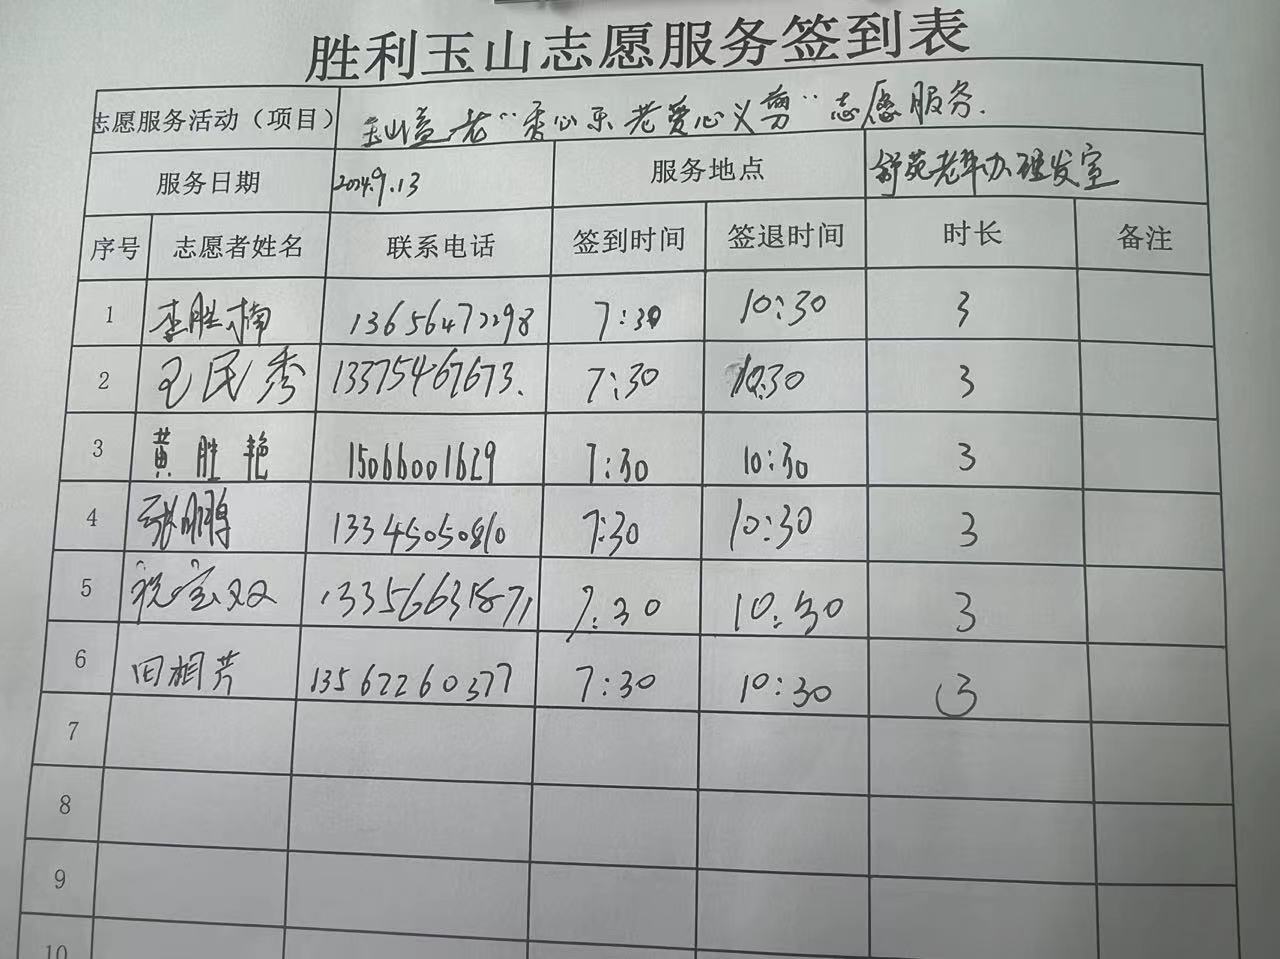 胜利玉山志愿服务签到表
志愿服务活动（项目） 玉山益老“秀心乐老爱心义剪”志愿服务.
服务日期 2024.9.13 服务地点 舒苑老年办理发室
序号 志愿者姓名 联系电话 签到时间 签退时间 时长 备注
1 李胜楠 13656472298 7:30 10:30 3
2 王民秀 13375467673. 7:30 10:30 3
3 黄胜艳 15066001629 7:30 10:30 3
4 张鹏博 13345050810 7:30 10:30 3
5 祝宝双 13356631871 7:30 10:30 3
6 田相芹 13562260377 7:30 10:30 3
7
8
9
10